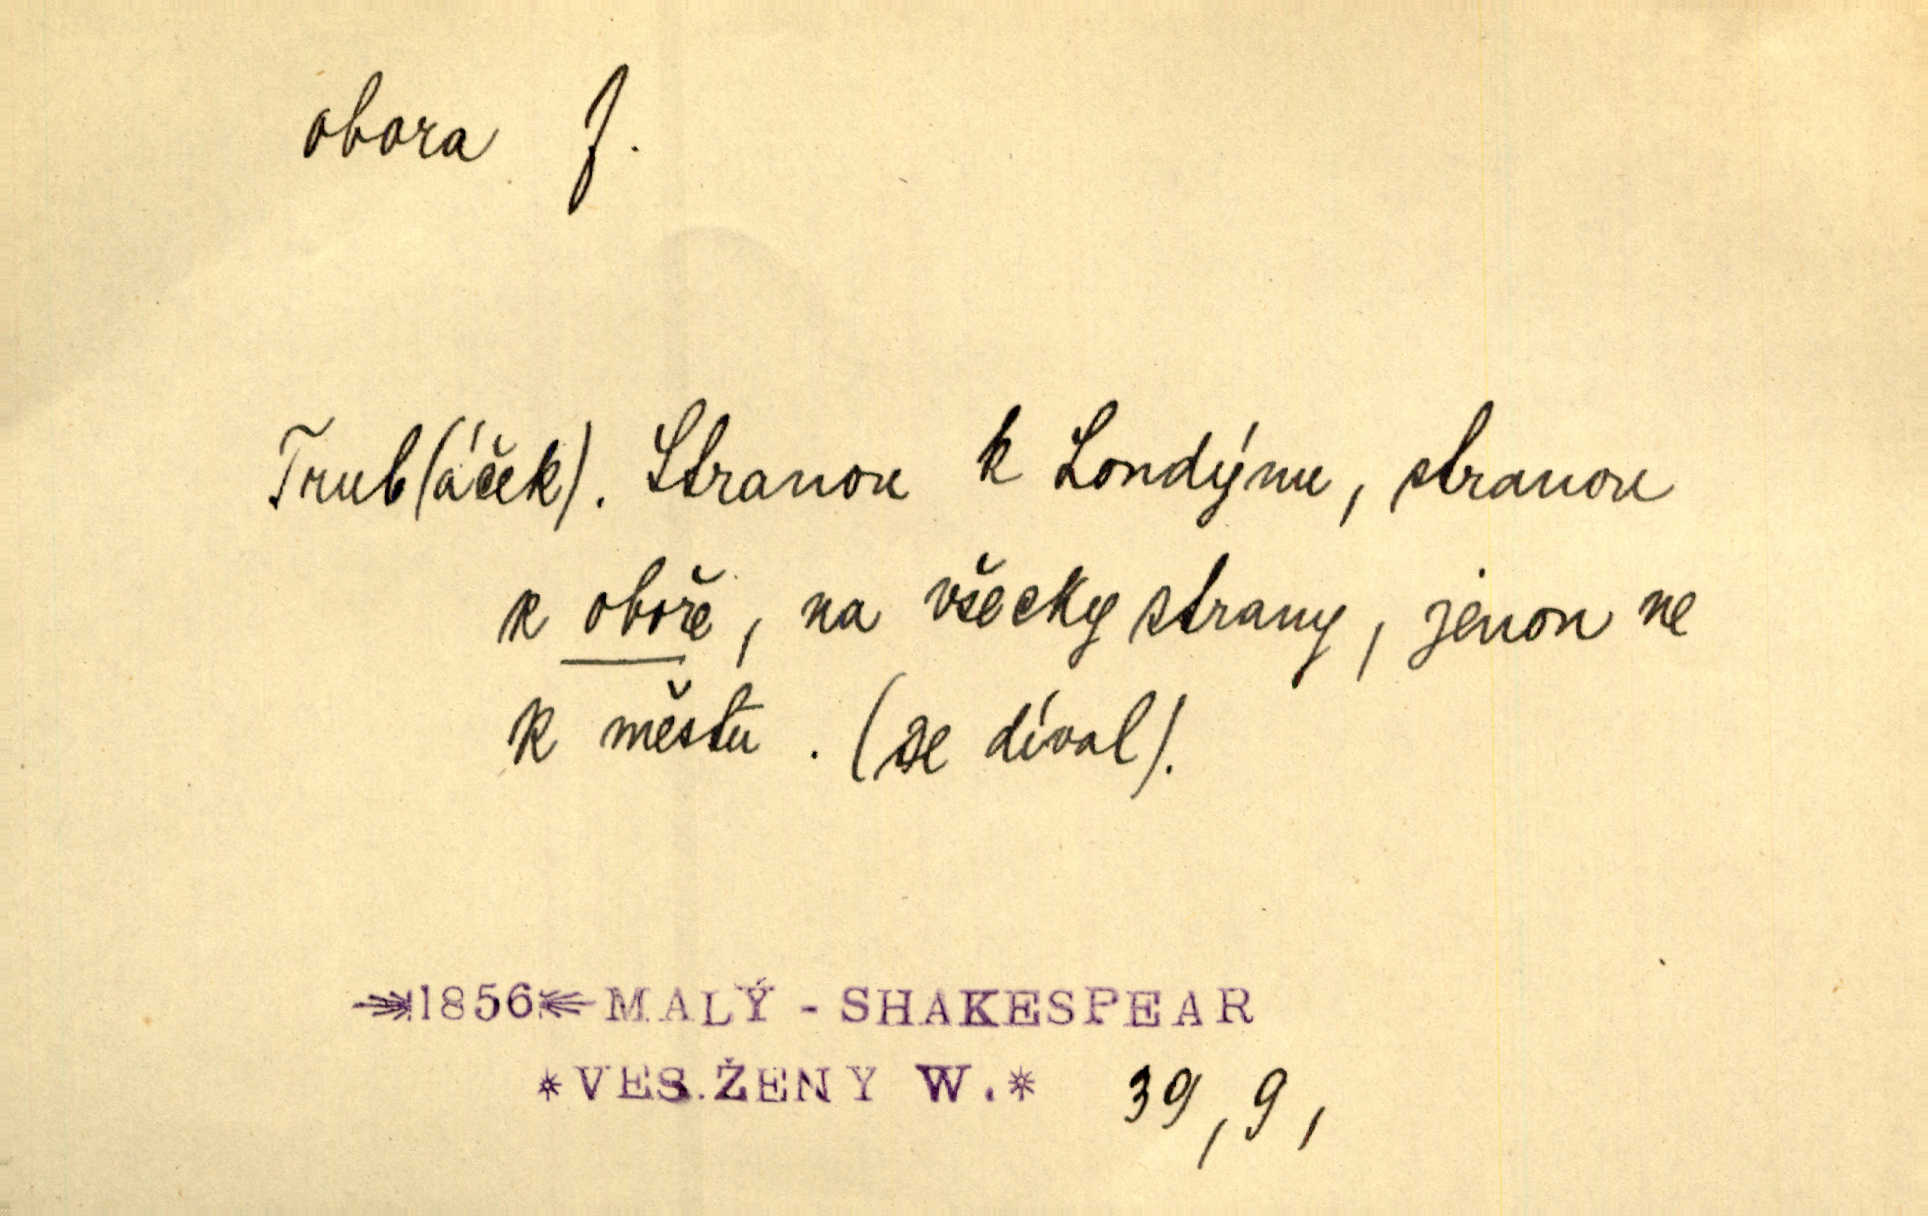 obora f.
Trub(áček). Stranou k Londýnu, stranou
k oboře, na všecky strany, jenom ne
k městu. (se díval).
1856 MALÝ - SHAKESPEAR
*VES. ŽENY W.* 39, 9,